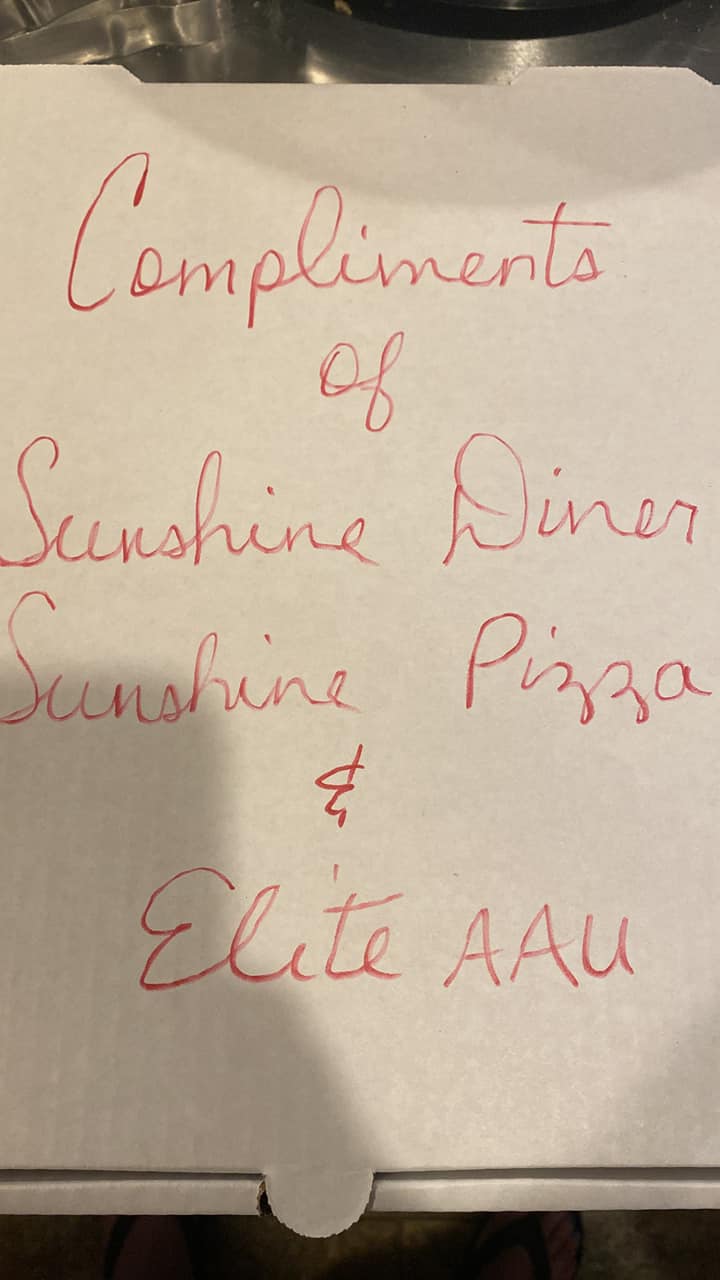 Compliments
of
Sunshine Diner
Sunshine Pizza
&
Elite AAU